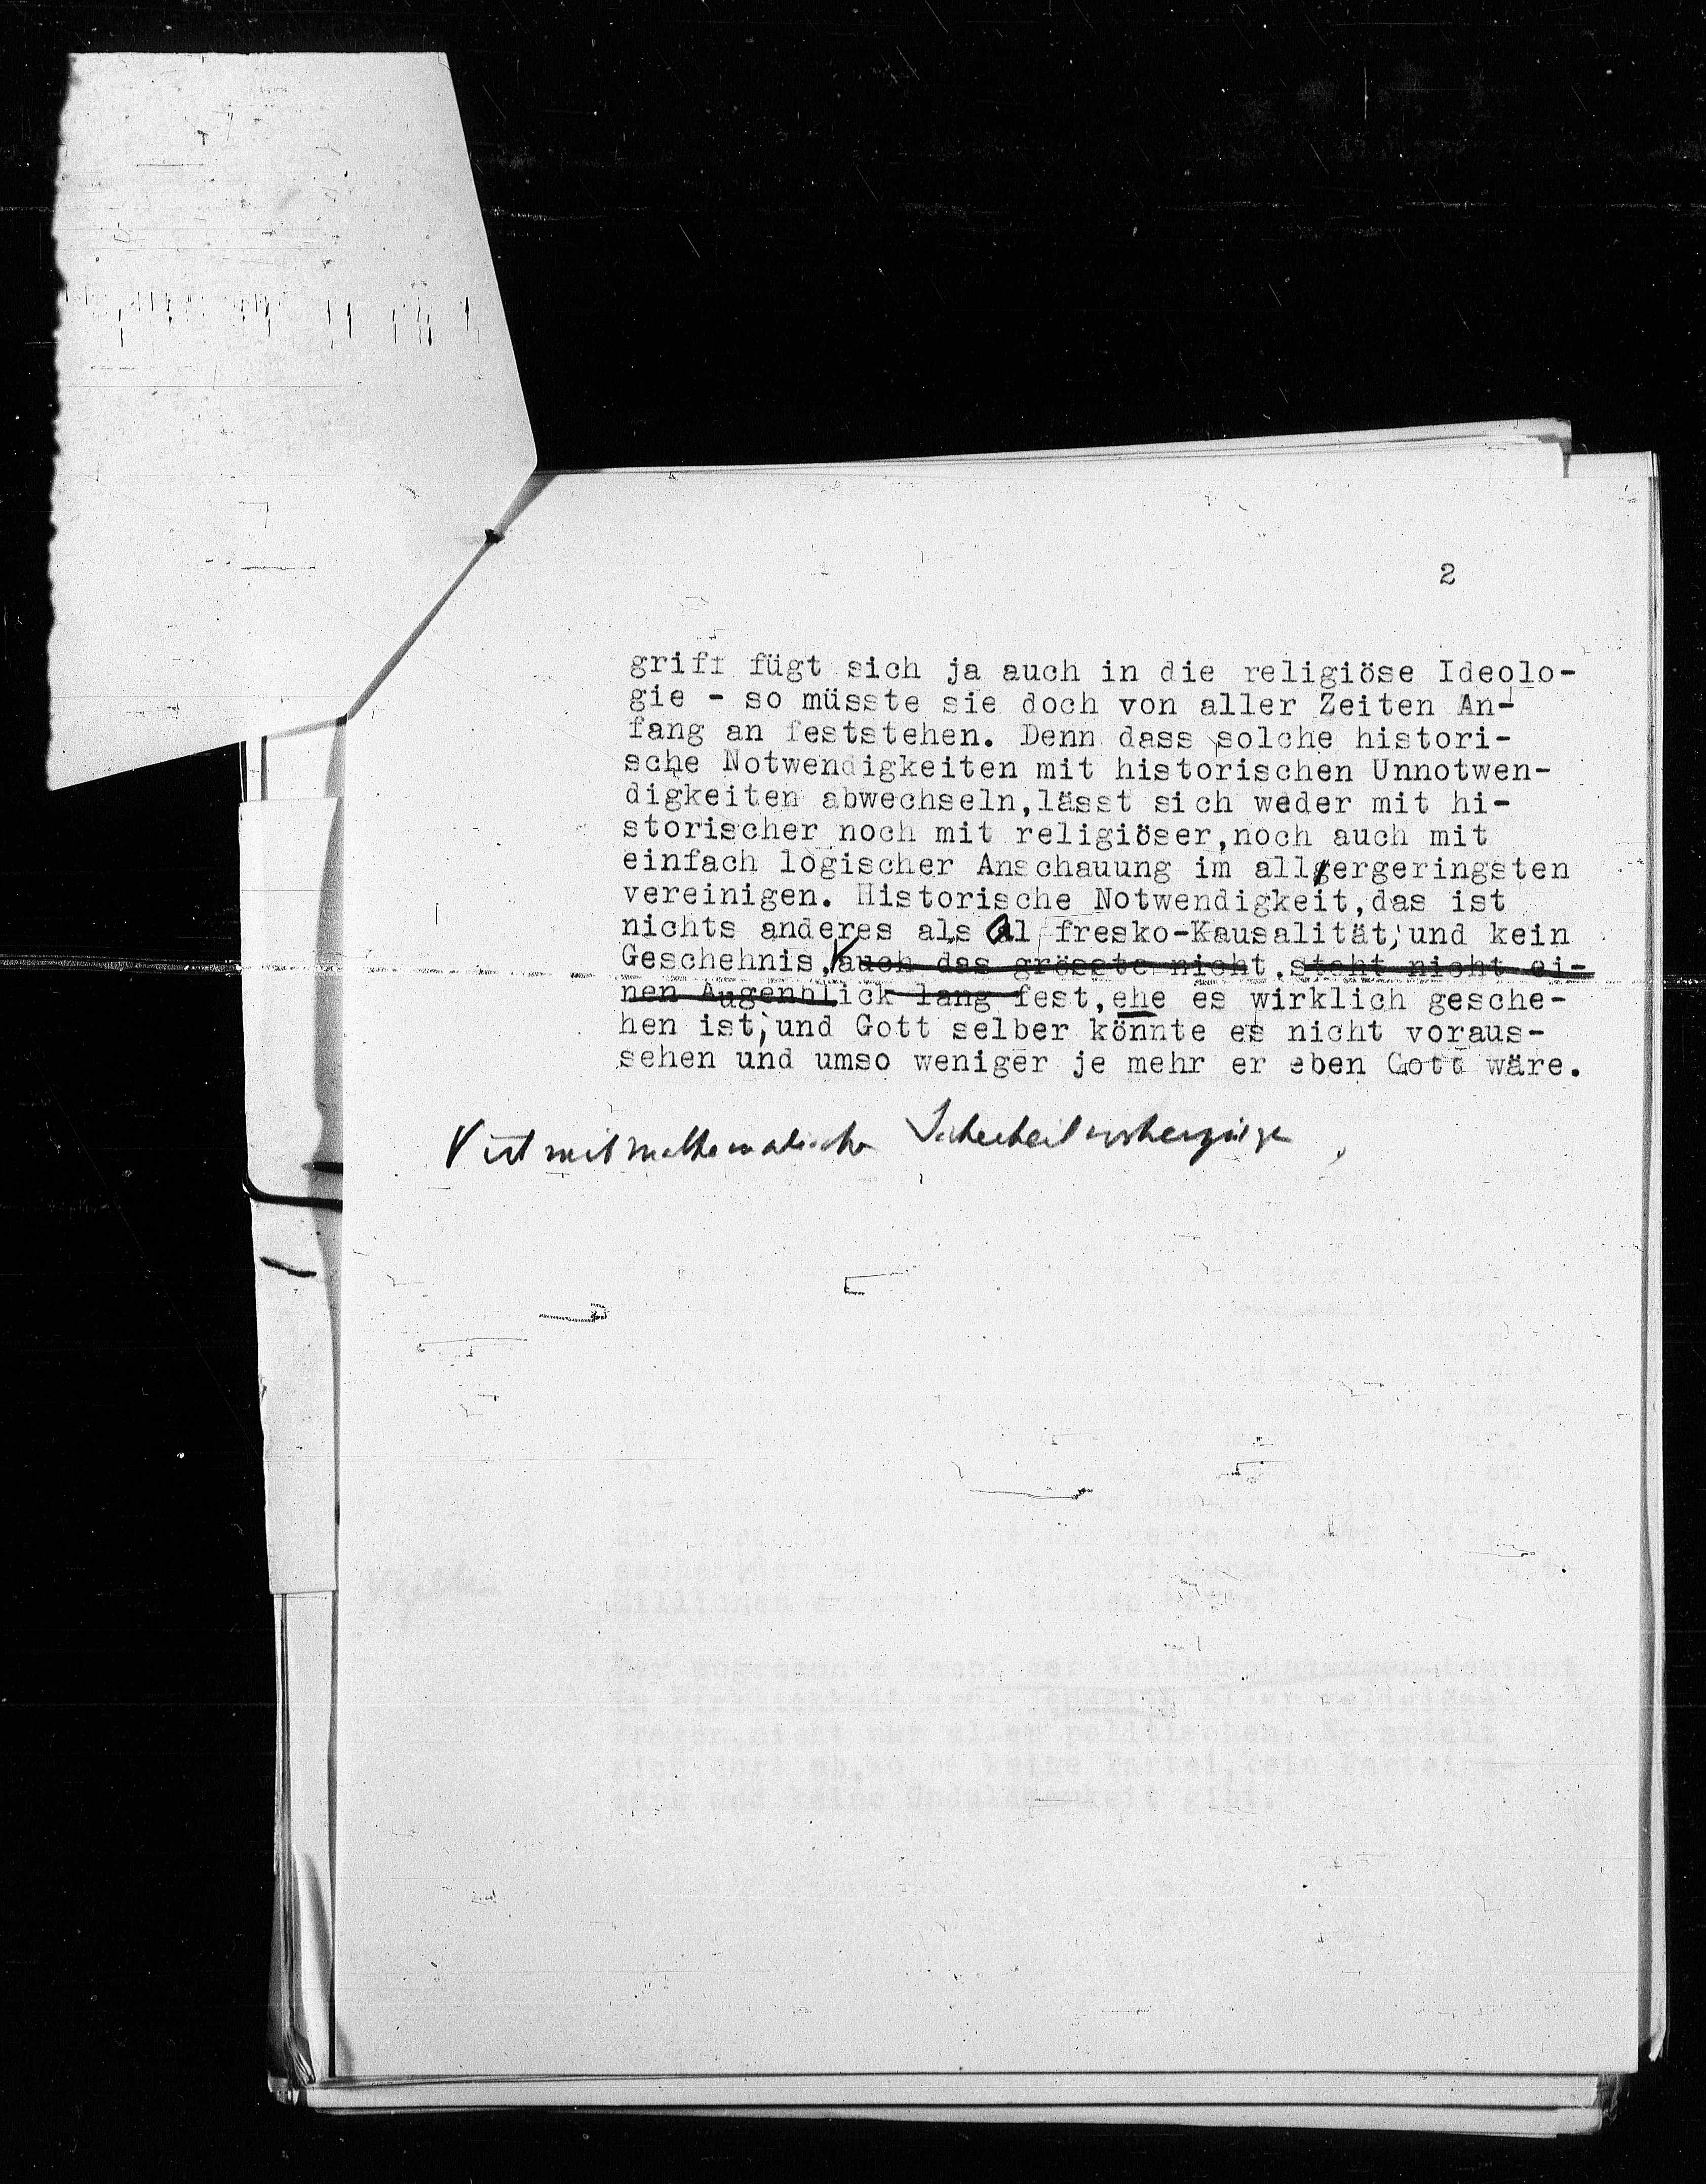 2
griff fügt sich ja auch in die religiöse Ideolo-
gie - so müsste sie doch von aller Zeiten An-
fang an feststehen. Denn dass solche histori-
sche Notwendigkeiten mit historischen Unnotwen-
digkeiten abwechseln,lässt sich weder mit hi-
storischer noch mit religiöser,noch auch mit
einfach logischer Anschauung im allergeringsten
vereinigen. Historische Notwendigkeit,das ist
nichts anderes als al fresko-Kausalität; und kein
Geschehnis, V auch das grösste nicht, steht nicht ei-
nen Augenblick lang fest, ehe es wirklich gesche-
hen ist; und Gott selber könnte es nicht voraus-
sehen und umso weniger je mehr er eben Gott wäre.
V ist mit mathematischer Sicherheit